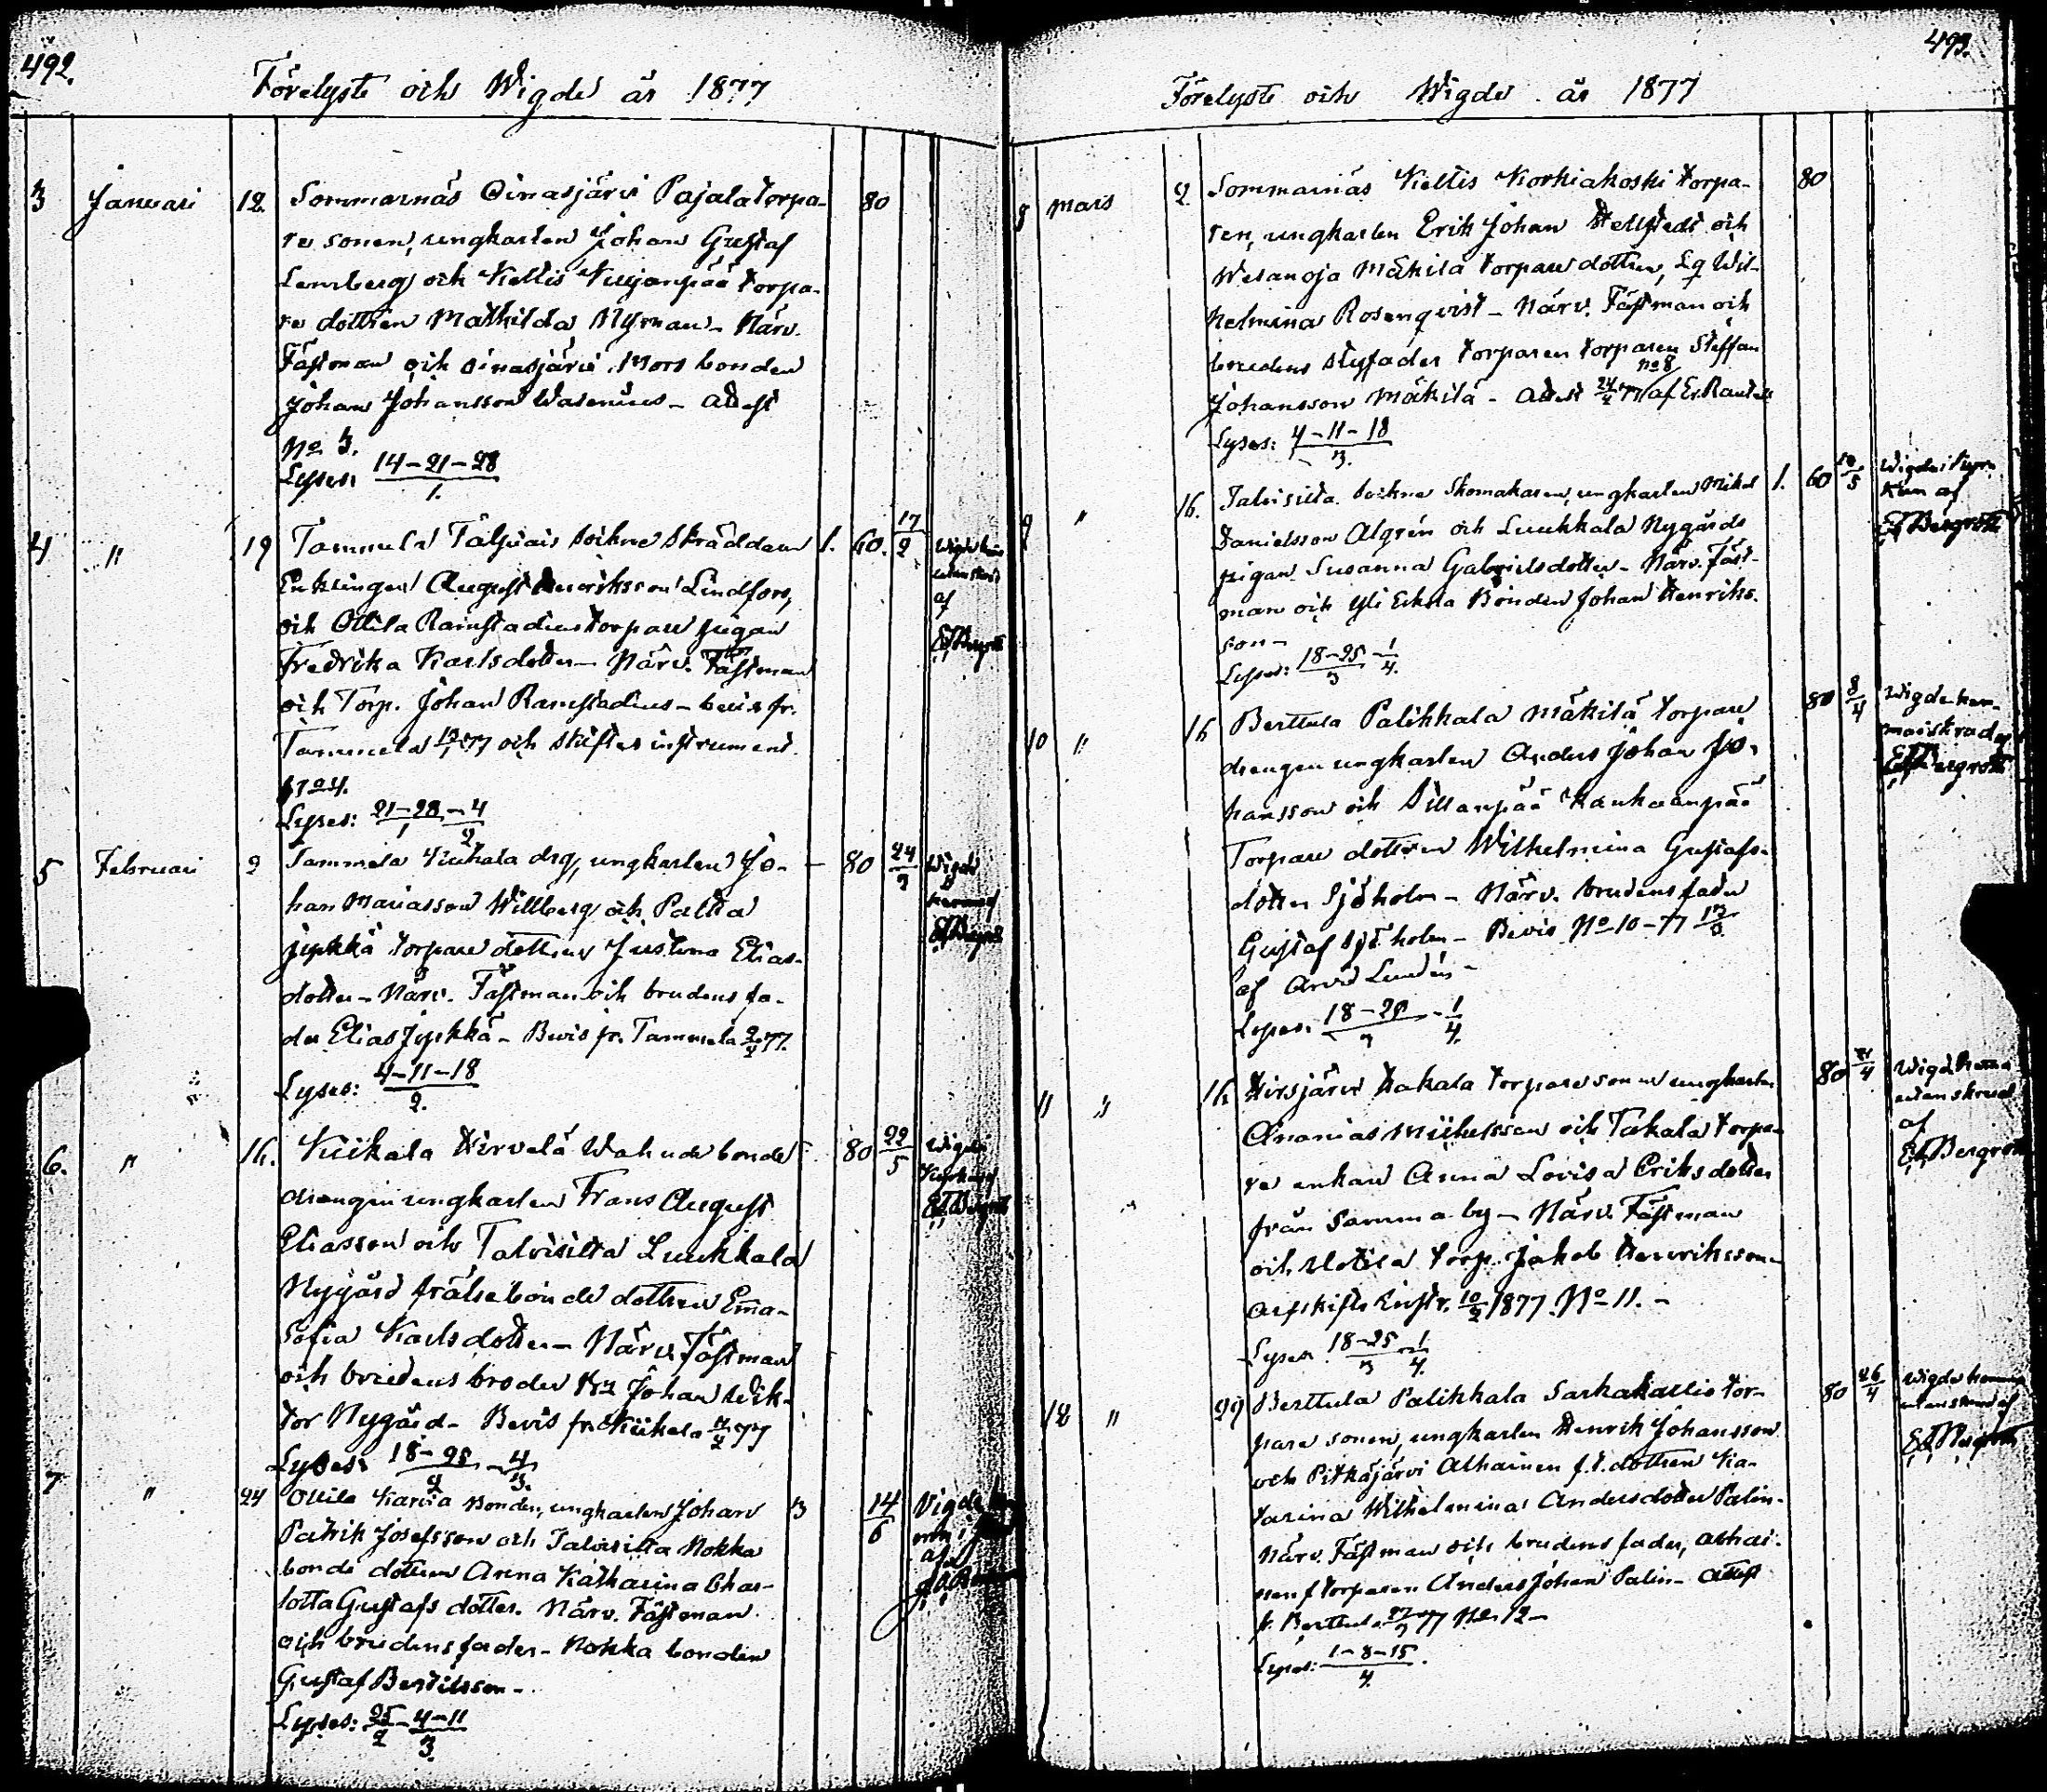 492.
Förelyste och Wigde år 1877
3 Januari 12. Sommarnäs Oinasjärvi Pajala torpa- 80
re sonen, ungkarlen Johan Gustaf
Lemberg och Kellis torpa-
re dottren Mathilda Nyman - Närv.
Fästman och Oinasjärvi Mors bonden
Johan Johansson Wasenius - Attest
No 3.
Lyses: 14-21-28
1.
4 " 19 Tammela Talpiais sockne skräddaren 1. 60. 17/2
Enklingen August Henriksson Lindfors,
och Ottila Ramstadius torpare pigan
Fredrika Karlsdotter - Närv. Fästman
och Torp. Johan Ramstadius - bevis fr.
Tammela 77 och skiftes instrument
No 4.
Lyses: 21-28-4
1 2
af
Bergroth
5 Februari 2 Tammela Kuhala drg, ungkarlen Jo- - 80 24/3
han Mariasson Willberg och Paltta
Jykkä torpare dottren Justina Elias-
dotter - Närv. Fästman och brudens fa-
der Elias Jykkä - Bevis fr. Tammela 2/2 77.
Lyses: 4-11-18
2.
Wigde
Bergroth
6. " 16. Kiikala Hirvelä bonde 80 22/5
drengen ungkarlen Frans August
Eliasson och Talvisilta Luukkala
Nygård frälsebonde dottren Ema
Sofia Karlsdotter - Närv. Fästman
och brudens broder Johan Wik-
tor Nygård - Bevis fr. Kiikala 77
Lyses: 18-25-4
2 3.
Wigde
Bergroth
7 " 24 Ottila Karvia Bonden, ungkarlen Johan 3 14/6
Patrik Josefsson och Talvisilta Nokka
bonde dottren Anna Katharina Char-
lotta Gustafs dotter. Närv. Fästman
och brudens fader - Nokka bonden
Gustaf Bertilsson -
Lyses: 25/2 - 4-11
3.
Vigde
af
493.
Förelyste och Wigde år 1877
8 mars 2 Sommarnäs Kellis Korkiakoski torpa- 80
ren, ungkarlen Erik Johan Hellstedt och
Wesanoja Mäkilä torpare dottren, Eq Wil-
helmina Rosenqvist - Närv. Fästman och
brudens styfader torparen torparen Steffan
Johansson Mäkilä - Attest No 8 24/2 77 af Er. Rautell
Lyses: 4-11-18
3.
9 " 16. Talvisilta sockne skomakaren, ungkarlen Mikel 1. 60
Danielsson Algrén och Luukkala Nygårds
pigan Susanna Gabrielsdotter - Närv. Fäst-
man och Yli Erkola Bonden Johan Henriks-
son -
Lyses: 18-25-1
3 4.
af
Bergroth
10 " 16 Berttula Palikkala Mäkilä torpare 80 8/4
drengen ungkarlen Anders Johan Jo-
hansson och Sillanpää Kankaanpää
Torpare dottren Wilhelmina Gustafs-
dotter Sjöholm - Närv. brudens fader
Gustaf Sjöholm - Bevis No 10-77
af Arvid Lundén -
Lyses: 18-25-1
3 4.
Bergroth
11 " 16. Hirsjärvi Hakala torpare sonen ungkarlen 80
Ananias Michelsson och Takala torpa-
re enkan Anna Lovisa Eriksdotter
från samma by - Närv. Fästman
och torp. Jakob Henriksson -
arfskifts Instr. 10/2 1877. No 11. -
Lyses: 18-25-1
3 4.
af
Bergroth
12 " 29 Berttula Palikkala Sarkakallio tor- 80 26/4
pare sonen, ungkarlen Henrik Johansson
och Pitkäjärvi Alhainen f.t. dottren Ka-
tarina Wilhelmina Andersdotter Palin -
Närv. Fästman och brudens fader, Alhai-
nen f torparen Anders Johan Palin - Attest
fr. Berttula 77 No 12 -
Lyses: 1-8-15
4.
Bergroth